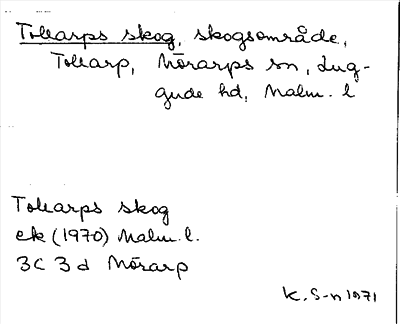 Tollarps skog, skogsområde,
Tollarp, Mörarps sn, Lug-
gude hd, Malm. l
Tollarps skog
ek (1970) Malm. l.
3C 3d Mörarp
K. S-n 1971